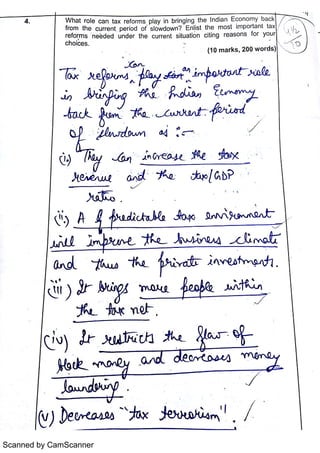 4. What role can tax reforms play in bringing the Indian Economy back
from the current period of slowdown? Enlist the most important tax
reforms needed under the current situation citing reasons for your
choices.
(10 marks, 200 words)
4½
10
can
Tax reforms play an important role
in bringing the Indian Economy
back from the current period
of slowdown as :-
(i) They can increase the tax
revenue and the tax/GDP
ratio.
(ii) A predictable tax environment
will improve the business climate
and thus the private investments.
(iii) It brings more people within
the tax net.
(iv) It restricts the flow of
black money and decreases money
laundering.
(v) Decreases "tax terrorism".
Scanned by CamScanner